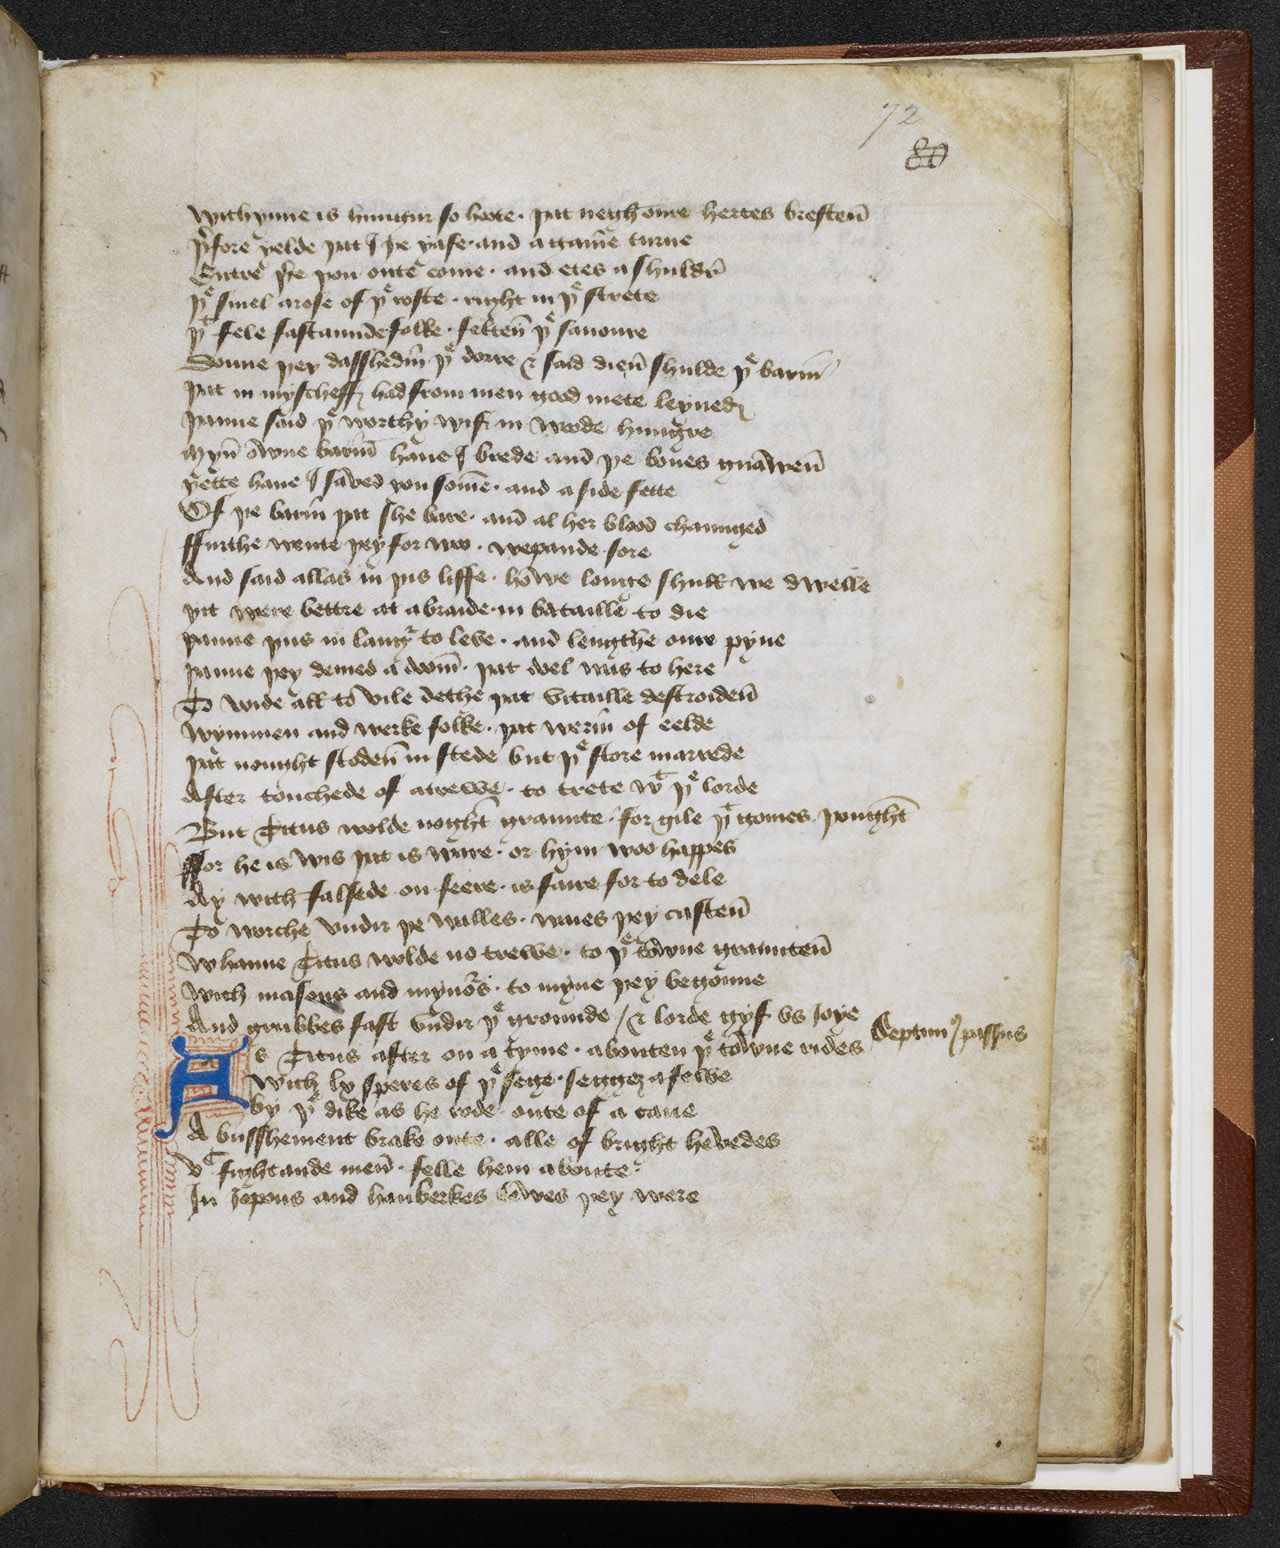 72
80
Withynne is hungur so hoote · þat negh oure hertes bresten̄
þͬfore ȝelde þat I þe ȝafe · and aȝaine turne
Entre þͬe þou oute come · and etes a shuldr̄
þͤ smel arose of þͤ roste · right in þͤ strete
þͭ fele fastannde folke · felten̄ þͤ sauoure
Donne þey dasshedm̄ þͤ dorre & said dien̄ shulde þͤ barm̄
þat in myscheff had from men good mete leyned
þanne said þͭ worthy wif · in wode hungre
Myn̄ owne barm̄ haue I brede and þe bones gnawen̄
ȝette haue I saved you som̄e · and a side fette
Of þe barm̄ þat she bare · and al her blood channged
ffurthe wente þey for woo · wepande sore
And said allas in þis liffe · howe longe shull we dwelle
ȝit were bettre at a braide · in bataille to die
þanne þus in langͬ to leve · and lengthe oure pyne
þanne þey demed a doom̄ · þat doel was to here
To voide all to vile dethe þat vitaille destroiden̄
Wymmen and werke folke · þat werm̄ of eelde
þat nought stoden̄ in stede but þͤ store marrede
After touchede of a trewe · to trete wͭ þͤ lorde
But Titus wolde noght graunte · for gile þͭ gomes þought
ffor he is wis þat is ware · or hym woo happes
Ay with falsede on feere · is faire for to dele
To worche vndir þe walles · waies þey casten̄
Whanne Titus wolde no trewe · to þͤ towne graunten̄
With masons and mynoͬs · to myne þey begonne
And grubbes fast vndir þͤ grounde / & lorde gyf vs Joye
Septimꝰ passus
As Titus after on a tyme · abouten þͤ towne rides
With lx speres of þͤ sege · seggeȝ a fewe
by þͤ dike as he rode oute of a caue
A busshement brake oute · alle of bright hewedes
vͨ fightande men̄ · felle hem aboute ·
In Jopons and hauberkes · þey were